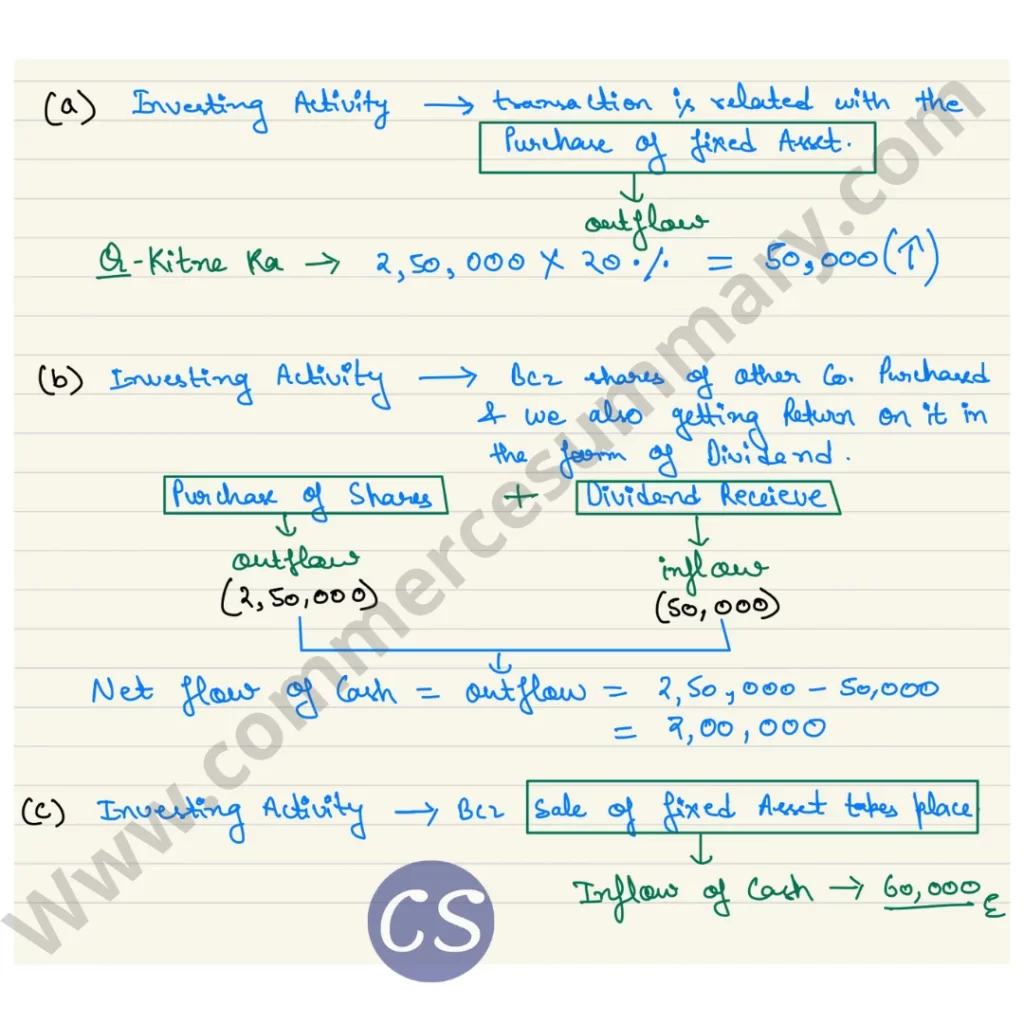 (a) Investing Activity → transaction is related with the
Purchase of fixed Asset.
↓
outflow
Q-Kitne Ka → 2,50,000 X 20% = 50,000(↑)
(b) Investing Activity → Bcz shares of other Co. Purchased
& we also getting Return on it in
the form of Dividend.
Purchase of Shares + Dividend Receieve
↓ ↓
outflow inflow
(2,50,000) (50,000)
↓
Net flow of Cash = outflow = 2,50,000 - 50,000
= 2,00,000
(c) Investing Activity → Bcz Sale of fixed Asset takes place
↓
Inflow of Cash → 60,000
CS
www.commercesummary.com